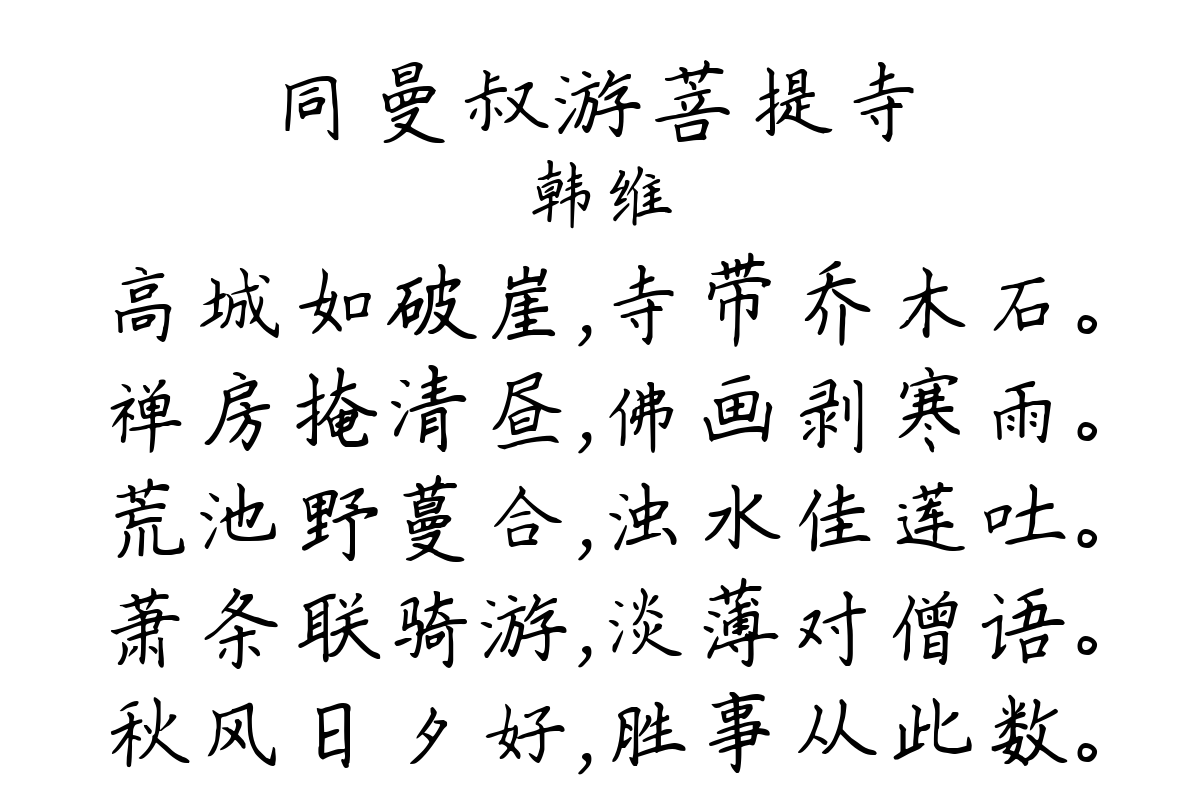 同曼叔游菩提寺
韩维
高城如破崖,寺带乔木石。
禅房掩清昼,佛画剥寒雨。
荒池野蔓合,浊水佳莲吐。
萧条联骑游,淡薄对僧语。
秋风日夕好,胜事从此数。